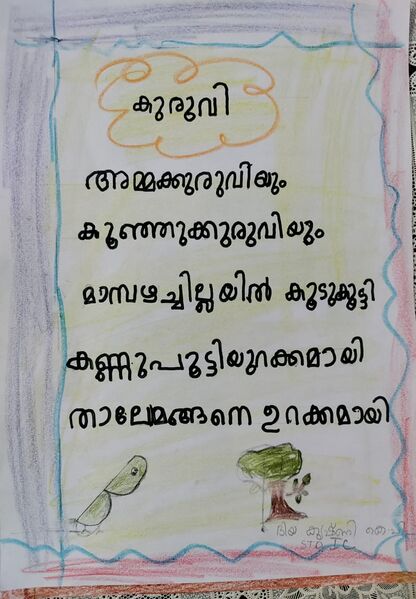 കുരുവി
അമ്മക്കുരുവിയും
കുഞ്ഞുക്കുരുവിയും
മാമ്പഴച്ചില്ലയിൽ കൂടുകൂട്ടി
കണ്ണുപൂട്ടിയുറക്കമായി
താലേമങ്ങനെ ഉറക്കമായി
ദിയ കൃഷ്ണ
STD I C